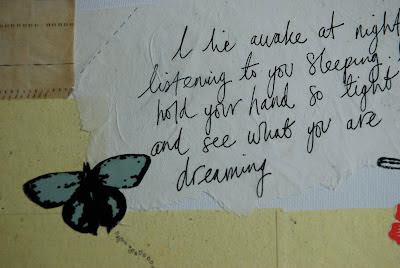 I lie awake at night
listening to you sleeping. I
hold your hand so tight
and see what you are
dreaming